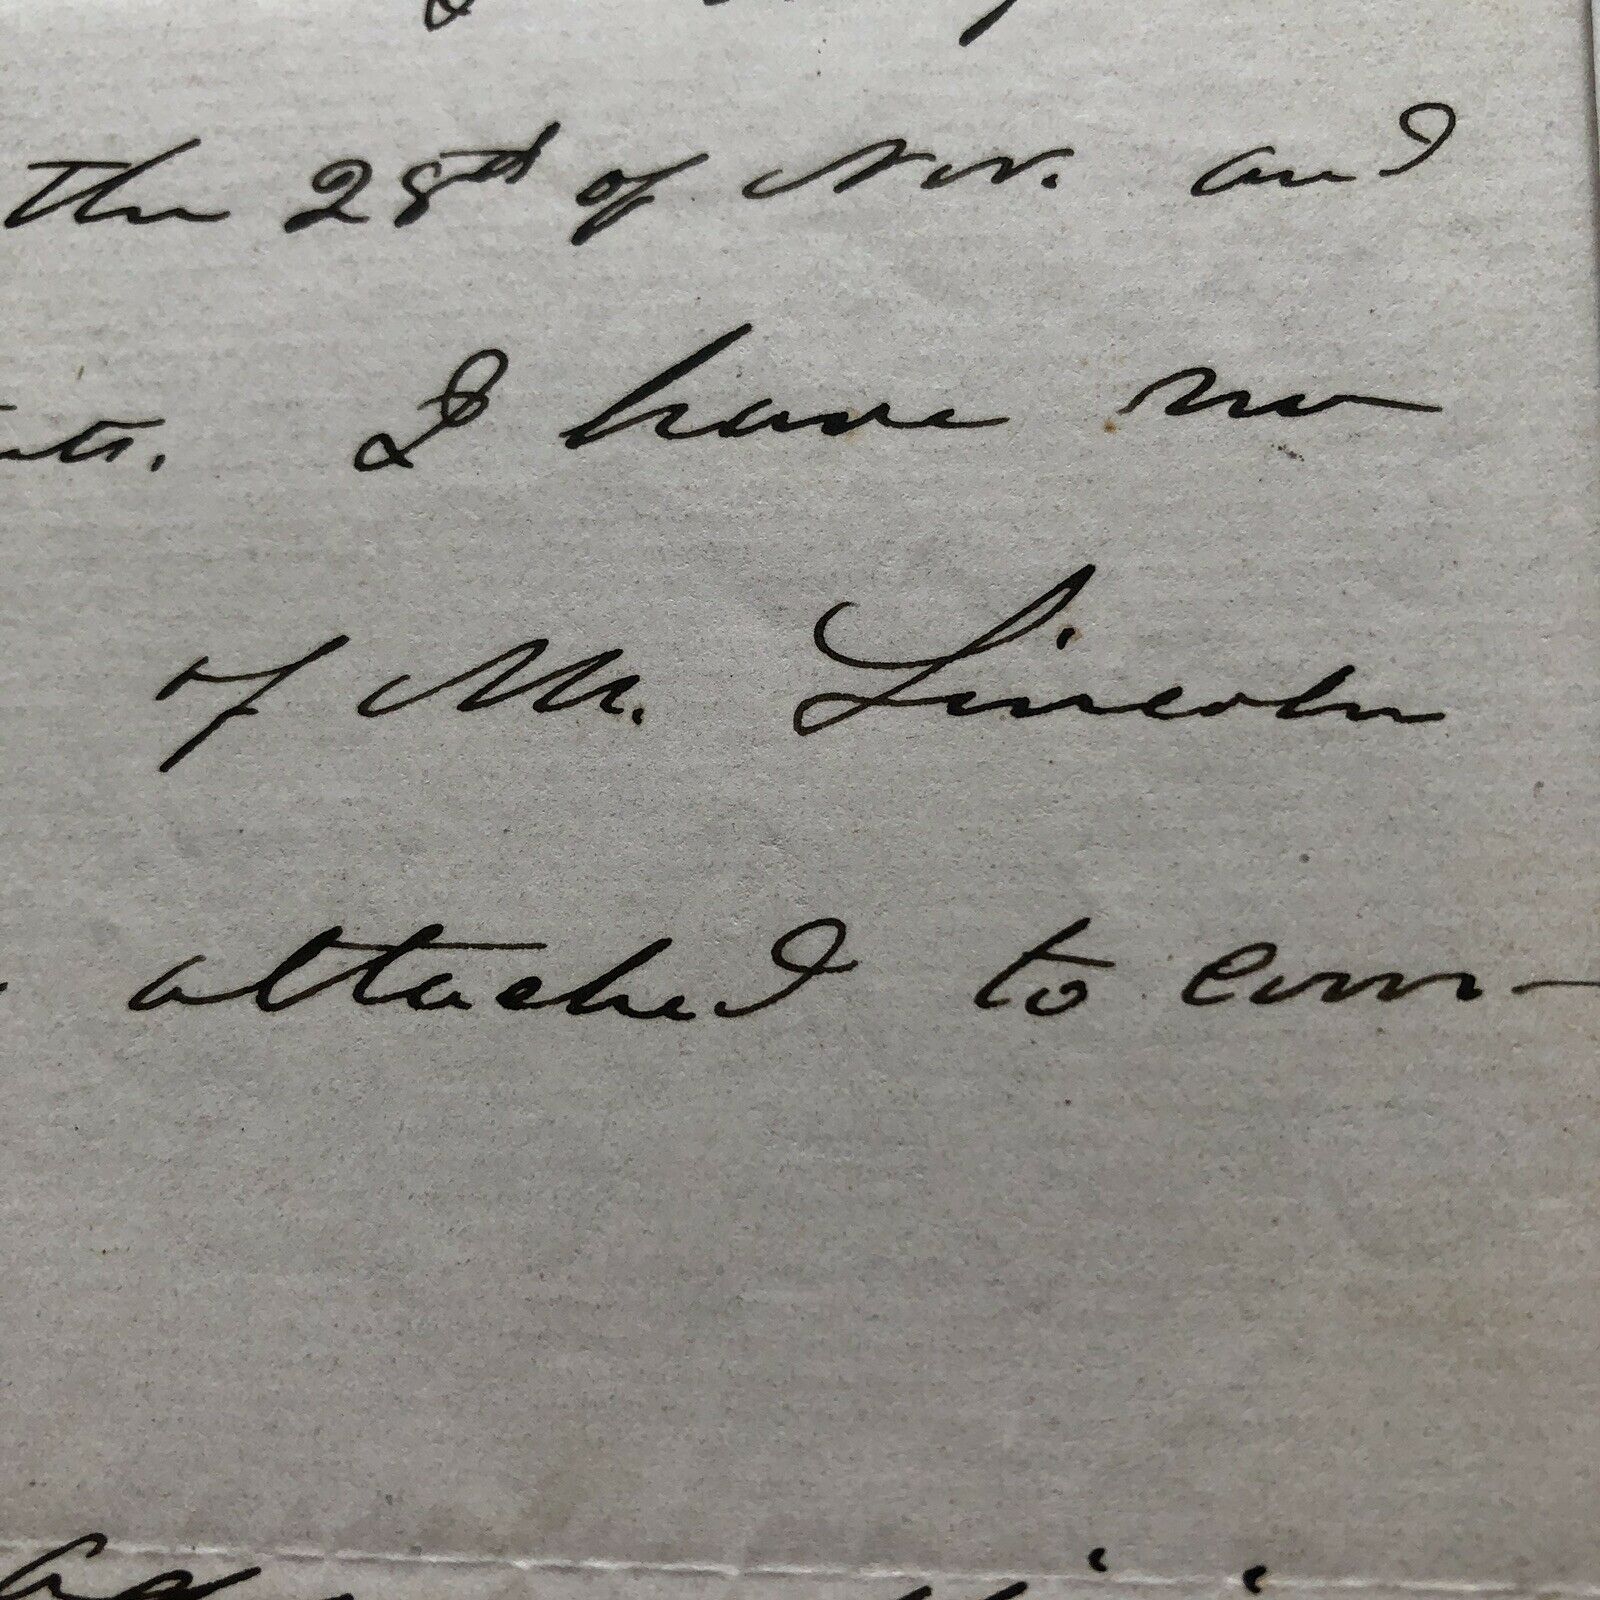 the 28th of Nov. and
I have no
of Mr. Lincoln
attached to com-